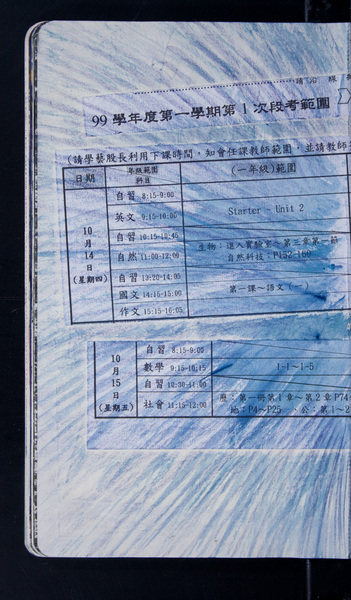 請沿線
99學年度第一學期第1次段考範圍
(請學藝股長利用下課時間，知會任課教師範圍，並請教師
日期 年級範圍 科目 (一年級)範圍
10月14日(星期四)
自習 8:15-9:00
英文 9:15-10:00 Starter - Unit 2
自習 10:15-10:45
自然 11:00-12:00 生物：進入實驗室～第三章第一節
自然科技：P152-160
自習 13:20-14:05
國文 14:15-15:00 第一課～語文(一)
作文 15:15-16:05
10月15日(星期五)
自習 8:15-9:00
數學 9:15-10:15 1-1～1-5
自習 10:30-11:00
社會 11:15-12:00 歷：第一冊第1章～第2章P74
地：P4～P25 公：第1～2